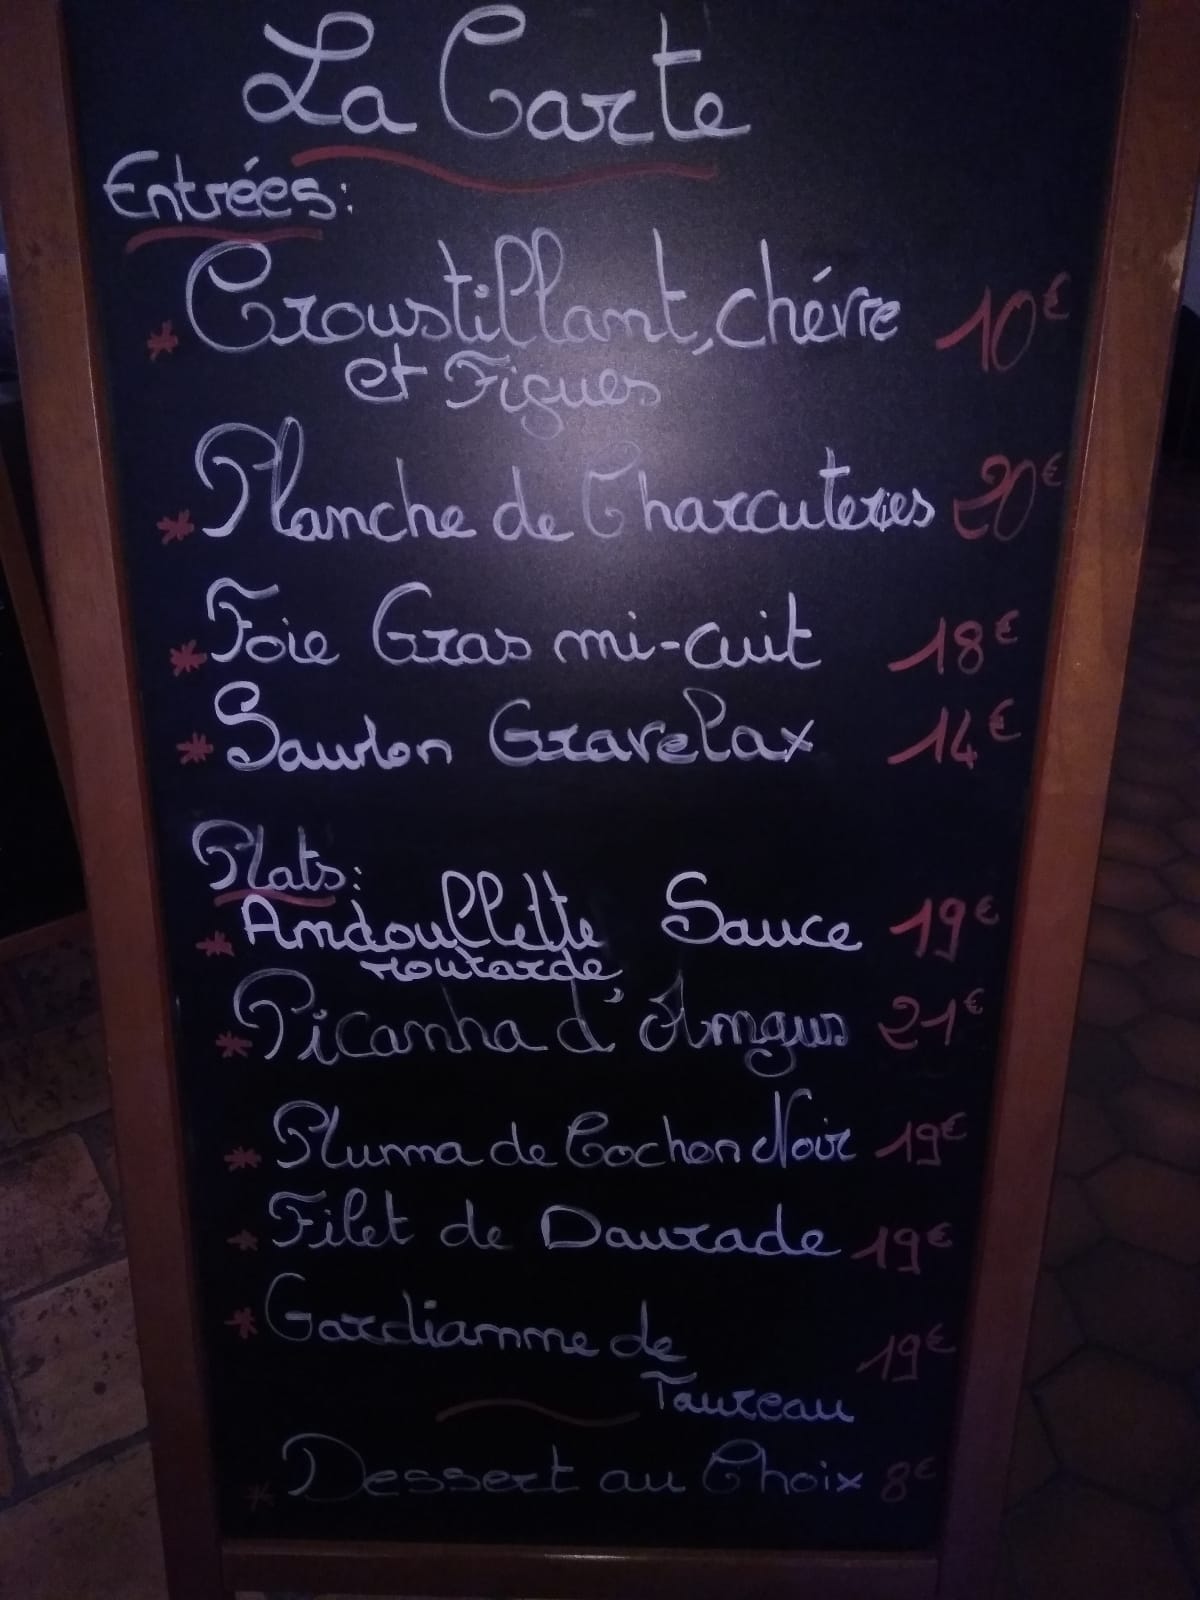 La Carte
Entrées:
* Croustillant, chévre 10€
et Figues
* Planche de Charcuteries 20€
* Foie Gras mi-cuit 18€
* Saumon Gravelax 14€
Plats:
* Andoullette Sauce 19€
moutarde
* Picanha d'Angus 21€
* Pluma de Cochon Noir 19€
* Filet de Daurade 19€
* Gardianne de 19€
Taureau
* Dessert au Choix 8€